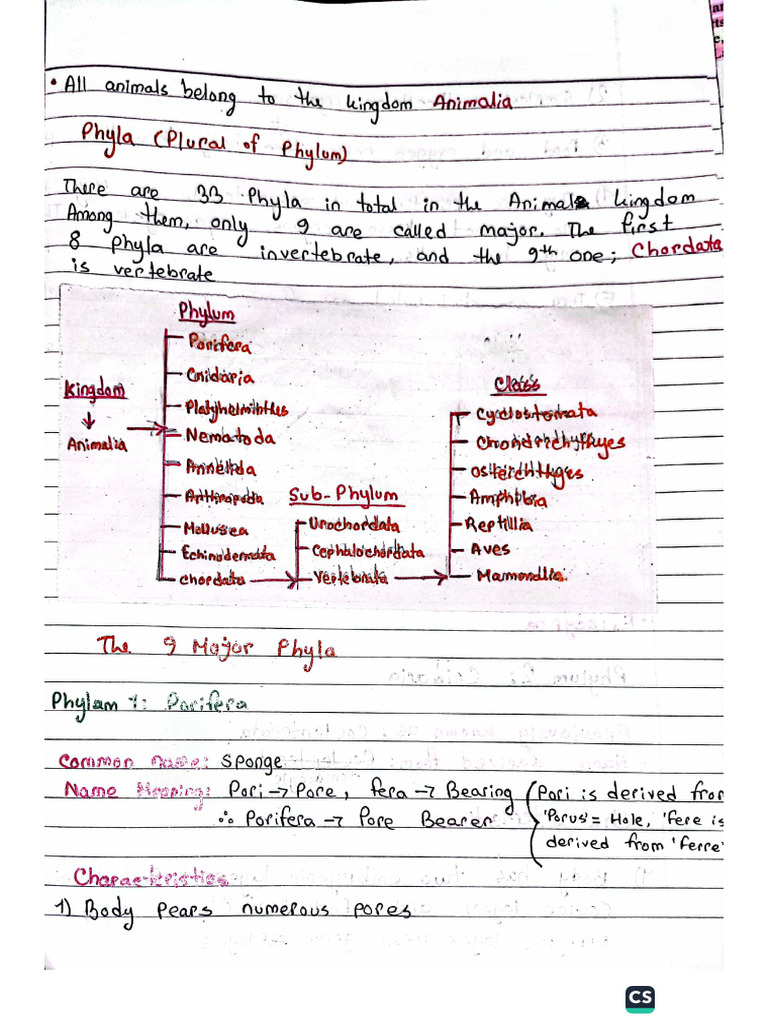 • All animals belong to the kingdom Animalia
Phyla (Plural of Phylum)
There are 33 Phyla in total in the Animal kingdom
Among them, only 9 are called major. The first
8 phyla are invertebrate, and the 9th one; Chordata
is vertebrate
Phylum
Porifera
Cnidaria
Class
Kingdom
Platyhelminthes
Cyclostomata
Animalia
Nematoda
Annelida
Sub-Phylum
Amphibia
Mollusca
Urochordata
Reptillia
Echinodermata
Cephalochordata
Aves
chordata
Vertebrata
The 9 Major Phyla
Phylam 1: Porifera
Common name: Sponge
Name Meaning: Pori → Pore, fera → Bearing (Pori is derived from
∴ Porifera → Pore Bearer
'Porus' = Hole, 'Fere is
derived from 'ferre'
Characteristics
1) Body pears numerous pores
CS